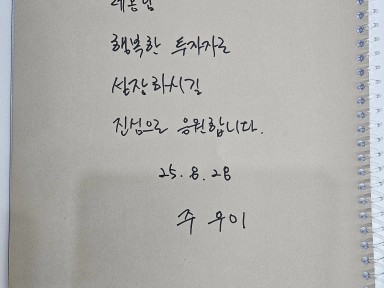 행복한 투자자로
성장하시길
진심으로 응원합니다.
25. 8. 28
주 우이